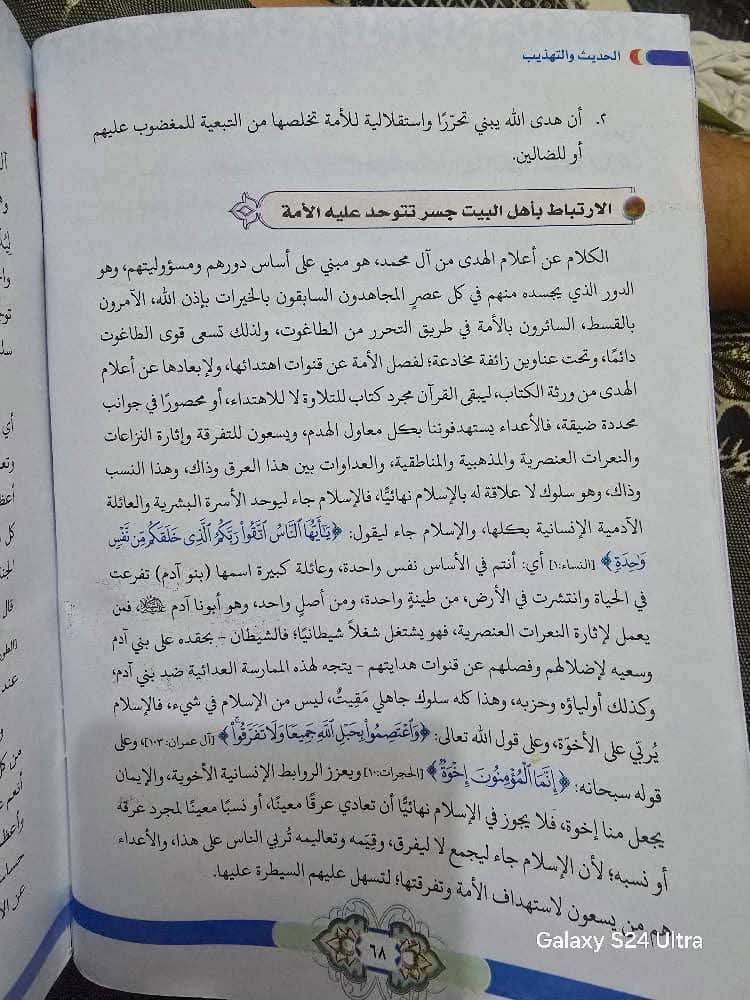 الحديث والتهذيب
٢. أن هدى الله يبني تحرّرًا واستقلالية للأمة تخلصها من التبعية للمغضوب عليهم
أو للضالين.
الارتباط بأهل البيت جسر تتوحد عليه الأمة
الكلام عن أعلام الهدى من آل محمد، هو مبني على أساس دورهم ومسؤوليتهم، وهو
الدور الذي يجسده منهم في كل عصرٍ المجاهدون السابقون بالخيرات بإذن الله، الآمرون
بالقسط، السائرون بالأمة في طريق التحرر من الطاغوت، ولذلك تسعى قوى الطاغوت
دائمًا، وتحت عناوين زائفة مخادعة؛ لفصل الأمة عن قنوات اهتدائها، ولإبعادها عن أعلام
الهدى من ورثة الكتاب، ليبقى القرآن مجرد كتاب للتلاوة لا للاهتداء، أو محصورًا في جوانب
محددة ضيقة، فالأعداء يستهدفوننا بكل معاول الهدم، ويسعون للتفرقة وإثارة النزاعات
والنعرات العنصرية والمذهبية والمناطقية، والعداوات بين هذا العرق وذاك، وهذا النسب
وذاك، وهو سلوك لا علاقة له بالإسلام نهائيًّا، فالإسلام جاء ليوحد الأسرة البشرية والعائلة
الآدمية الإنسانية بكلها، والإسلام جاء ليقول: ﴿يَٰٓأَيُّهَا ٱلنَّاسُ ٱتَّقُواْ رَبَّكُمُ ٱلَّذِى خَلَقَكُم مِّن نَّفْسٍ
وَٰحِدَةٍ﴾ [النساء:١] أي: أنتم في الأساس نفس واحدة، وعائلة كبيرة اسمها (بنو آدم) تفرعت
في الحياة وانتشرت في الأرض، من طينةٍ واحدة، ومن أصلٍ واحد، وهو أبونا آدم عليه السلام، فمن
يعمل لإثارة النعرات العنصرية، فهو يشتغل شغلًا شيطانيًا؛ فالشيطان - بحقده على بني آدم
وسعيه لإضلالهم وفصلهم عن قنوات هدايتهم - يتجه لهذه الممارسة العدائية ضد بني آدم،
وكذلك أولياؤه وحزبه، وهذا كله سلوك جاهلي مَقِيتٌ، ليس من الإسلام في شيء، فالإسلام
يُربِّي على الأخوّة، وعلى قول الله تعالى: ﴿وَٱعْتَصِمُواْ بِحَبْلِ ٱللَّهِ جَمِيعًا وَلَا تَفَرَّقُواْ﴾ [آل عمران:١٠٣]، وعلى
قوله سبحانه: ﴿إِنَّمَا ٱلْمُؤْمِنُونَ إِخْوَةٌ﴾ [الحجرات:١٠] ويعزز الروابط الإنسانية الأخوية، والإيمان
يجعل منا إخوة، فلا يجوز في الإسلام نهائيًّا أن تعادي عرقًا معينًا، أو نسبًا معينًا لمجرد عرقه
أو نسبه؛ لأن الإسلام جاء ليجمع لا ليفرق، وقِيَمه وتعاليمه تُربي الناس على هذا، والأعداء
هم من يسعون لاستهداف الأمة وتفرقتها؛ لتسهل عليهم السيطرة عليها.
٦٨
Galaxy S24 Ultra